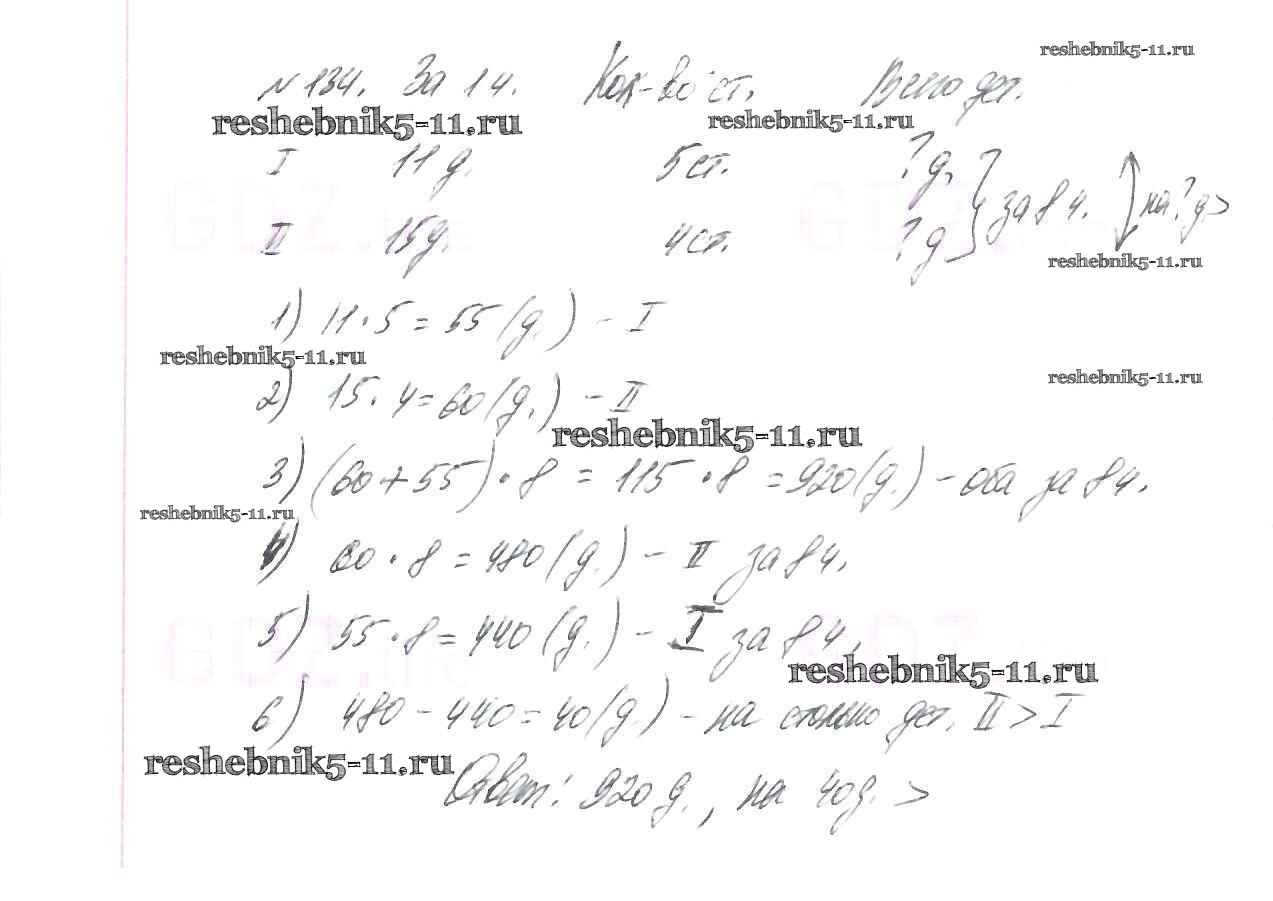 reshebnik5-11.ru
№ 134. За 1 ч. Кол-во ст. Всего дет.
reshebnik5-11.ru reshebnik5-11.ru
I 11 д. 5 ст. ? д.
} за 8 ч. на ? д. >
II 15 д. 4 ст. ? д
reshebnik5-11.ru
1) 11 · 5 = 55 (д.) – I
reshebnik5-11.ru
reshebnik5-11.ru
2) 15 · 4 = 60 (д.) – II
reshebnik5-11.ru
3) (60 + 55) · 8 = 115 · 8 = 920 (д.) – оба за 8 ч.
reshebnik5-11.ru
4) 60 · 8 = 480 (д.) – II за 8 ч.
5) 55 · 8 = 440 (д.) – I за 8 ч.
reshebnik5-11.ru
6) 480 – 440 = 40 (д.) – на столько дет. II > I
reshebnik5-11.ru
Ответ: 920 д., на 40 д. >